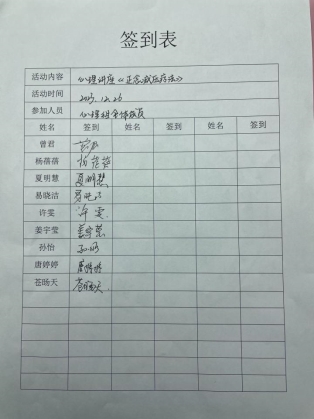 签到表
活动内容 心理讲座《正念减压疗法》
活动时间 2023.12.26
参加人员 心理组全体成员
姓名 签到 姓名 签到 姓名 签到
曾君
杨蓓蓓 杨蓓蓓
夏明慧 夏明慧
易晓洁 易晓洁
许雯 许雯
姜宇莹 姜宇莹
孙怡 孙怡
唐婷婷 唐婷婷
苍旸天 苍旸天